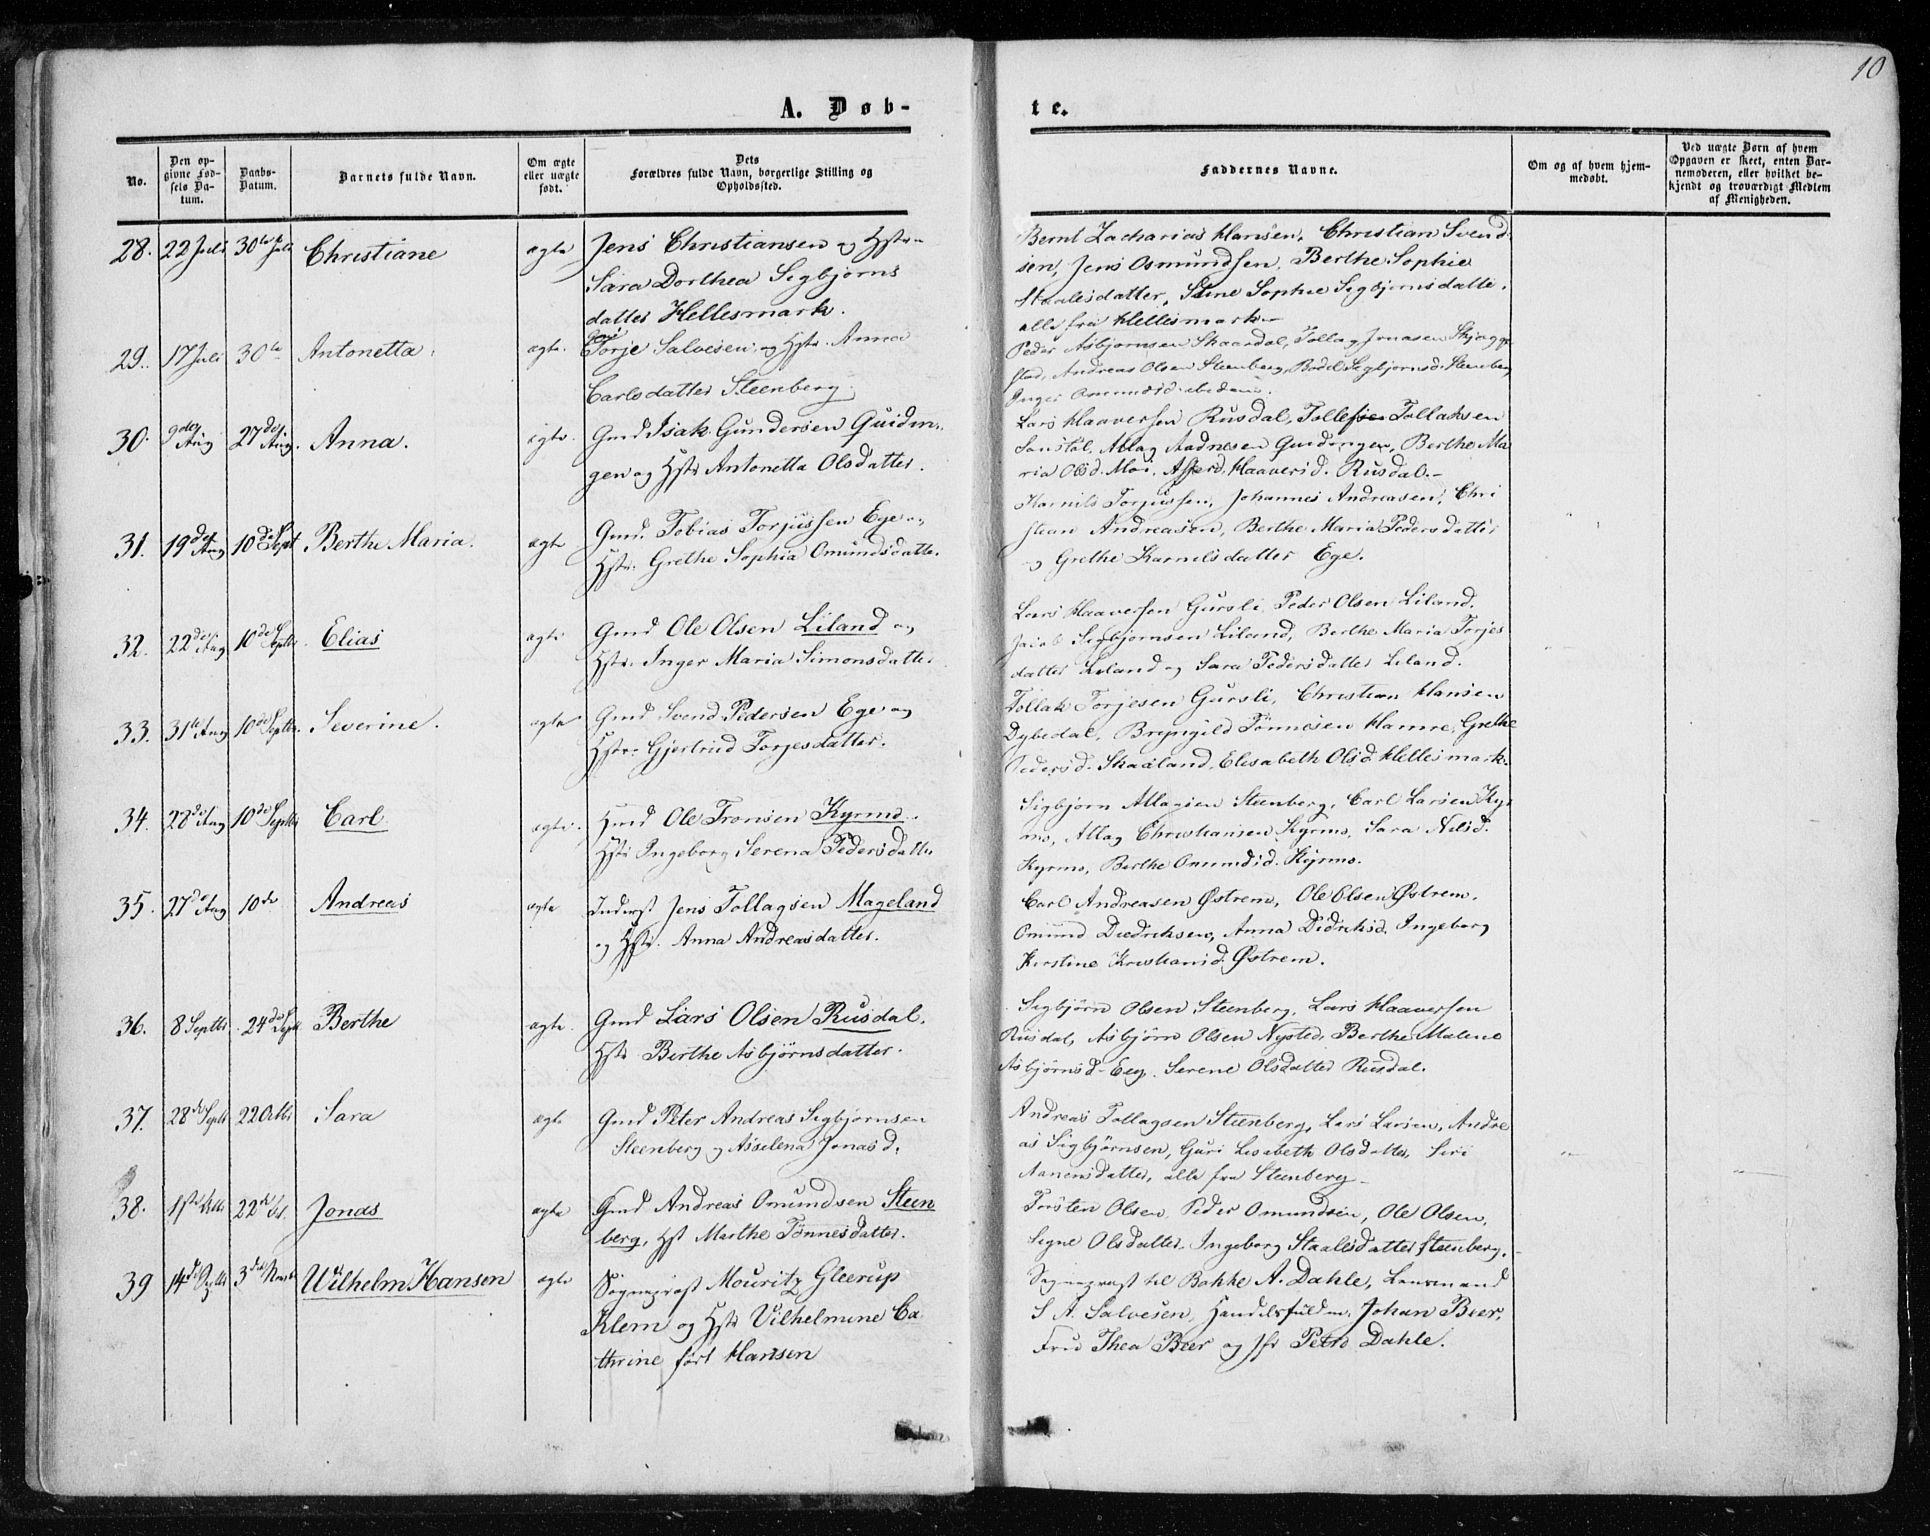 10
A. Døb-
te.
No.
Den op-
givne Fød-
sels Da-
tum.
Daabs-
Datum.
Barnets fulde Navn.
Om ægte
eller uægte
født.
Dets
Forældres fulde Navn, borgerlige Stilling og
Opholdssted.
Faddernes Navne.
Om og af hvem hjem-
medøbt.
Ved uægte Børn af hvem
Opgaven er skeet, enten Bar-
nemoderen, eller hvilket be-
kjendt og troværdigt Medlem
af Menigheden.
28. 22 Juli 30te Juli Christiane ægte Jens Christiansen og Hstr.
Sara Dorthea Sigbjørns
datter Hellesmark.
Bernt Zacharias Hansen, Christian Svend
sen, Jens Osmundsen, Berthe Sophie
Staalesdatter, Stine Sophie Sigbjørnsdatter,
alle fra Hellesmark
29. 17 Juli 30te Antonetta ægte. Torje Salvesen og Hstr. Anna
Carlsdatter Steenberg
Peder Asbjørnsen Skaardal, Tollag Jonasen Skjægge
stad, Andreas Olsen Steenberg, Bodel Sigbjørnsd. Steenberg
Inger Omundsd. ibidem.
30. 9de Aug 27de Aug. Anna. ægte. Gmd Isak Gundersen Guidin
gen og Hstr Antonetta Olsdatter.
Lars Haaversen Rusdal, Tollef Tollaksen
Sanstøl, Atlag Aadnesen Guidingen, Berthe Ma
ria Olsd. Moi, Haaversd. Rusdal.
31. 19de Aug 10de Sept Berthe Maria. ægte Gmd. Tobias Torjussen Ege og
Hstr. Grethe Sophia Omundsdatter.
Karnils Torjussen, Johannes Andreasen, Chri
stian Andreasen, Berthe Maria Pedersdatter
og Grethe Karnilsdatter Ege.
32. 22de Aug 10de Septbr. Elias ægte Gmd Ole Olsen Liland og
Hstr. Inger Maria Simonsdatter
Lars Haaversen Gursli, Peder Olsen Liland,
Jacob Sigbjørnsen Liland, Berthe Maria Torjes
datter Liland og Sara Pedersdatter Liland.
33. 31te Aug 10de Septbr. Severine. ægte Gmd Svend Pedersen Ege og
Hstr. Gjertrud Torjesdatter.
Tollak Torjesen Gursli, Christian Hansen
Dybedal, Bryngild Tønnesen Hamre, Grethe
Pedersd. Skaaland, Elisabeth Olsd Hellesmark.
34. 28de Aug 10de Septbr Carl ægte. Hmd Ole Tronsen Kyrmo.
Hstr Ingeborg Serena Pedersdatter
Sigbjørn Atlagsen Steenberg, Carl Larsen Kyr
mo, Atlag Christiansen Kyrmo, Sara Nilsd.
Kyrmo, Berthe Omundsd. Kyrmo.
35. 27de Aug 10de Andreas ægte Inderst Jens Tollagsen Mageland
og Hstr. Anna Andreasdatter.
Carl Andreasen Østrem, Ole Olsen Østrem,
Omund Diedriksen, Anna Didriksd. Ingeborg
Kirstine Kristiansd. Østrem.
36. 8 Septbr 24de Sept Berthe ægte. Gmd Lars Olsen Rusdal.
Hstr Berthe Asbjørnsdatter.
Sigbjørn Olsen Steenberg, Lars Haaversen
Rusdal, Asbjørn Olsen Nysted, Berthe Malene
Asbjørnsd Eeg. Serene Olsdatter Rusdal.
37. 28de Septbr 22 Octbr Sara ægte Gmd Peter Andreas Sigbjørnsen
Steenberg og Asselena Jonasd.
Andreas Tollagsen Steenberg, Lars Larsen, Andre
as Sigbjørnsen, Guri Lisabeth Olsdatter, Siri
Aanensdatter, alle fra Steenberg
38. 1ste Octbr 22de Oct. Jonas ægte Gmd Andreas Omundsen Steen
berg, Hst Marthe Tønnesdatter.
Torsten Olsen, Peder Omundsen, Ole Olsen,
Signe Olsdatter, Ingeborg Staalesdatter Steenberg.
39 14de Septbr 3de Novbr Wilhelm Hansen ægte Sogneprest Mouritz Gleerup
Klem og Hstr Vilhelmine Ca
thrine født Hansen
Sogneprest til Bakke A. Dahle, Lensmand
S A. Salvesen, Handelsfuldm. Johan Beer,
Fru Thea Beer og Jfr Petro Dahle.